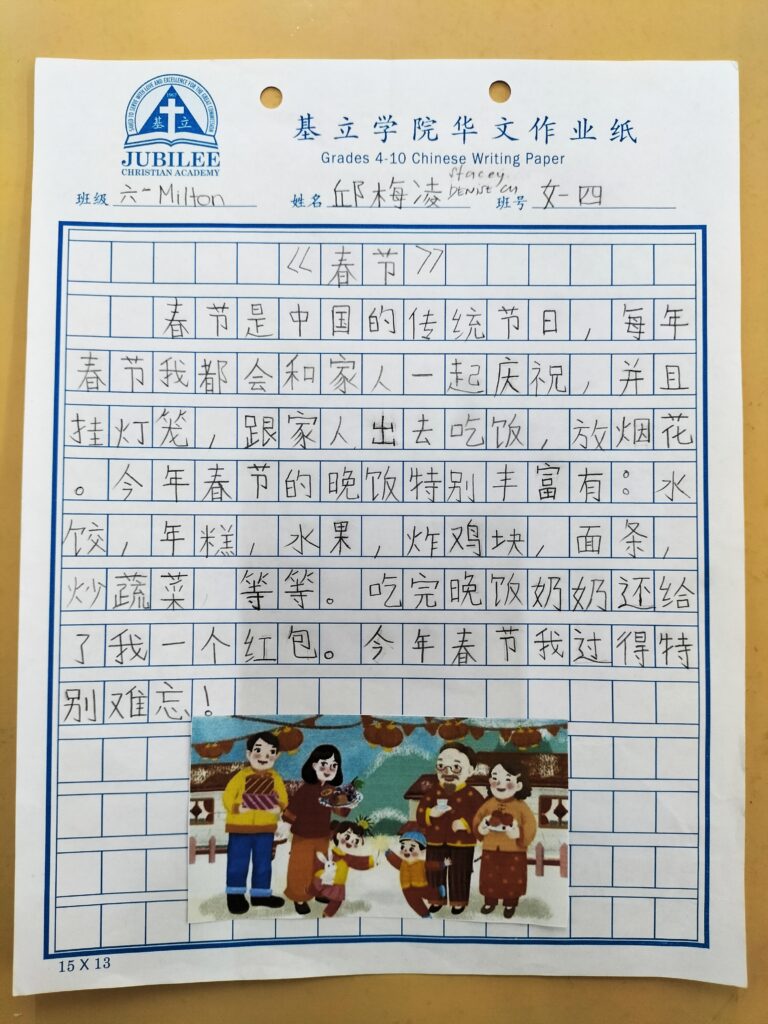 SOUND TO SERVE WITH LOVE AND EXCELLENCE FOR THE GREAT COMMISSION
1967
基 立
JUBILEE
CHRISTIAN ACADEMY
基立学院华文作业纸
Grades 4-10 Chinese Writing Paper
班级 六一Milton 姓名 邱梅凌 Stacey 班号 女-四
《春节》
春节是中国的传统节日，每年
春节我都会和家人一起庆祝，并且
挂灯笼，跟家人出去吃饭，放烟花
。今年春节的晚饭特别丰富有：水
饺，年糕，水果，炸鸡块，面条，
炒蔬菜，等等。吃完晚饭奶奶还给
了我一个红包。今年春节我过得特
别难忘！
15 X 13